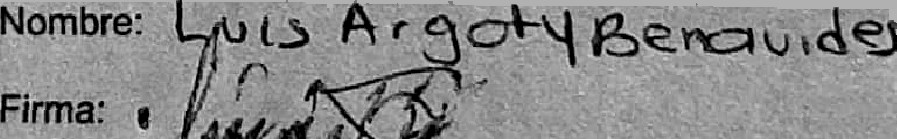 Nombre: Luis Argoty Benavides
Firma: